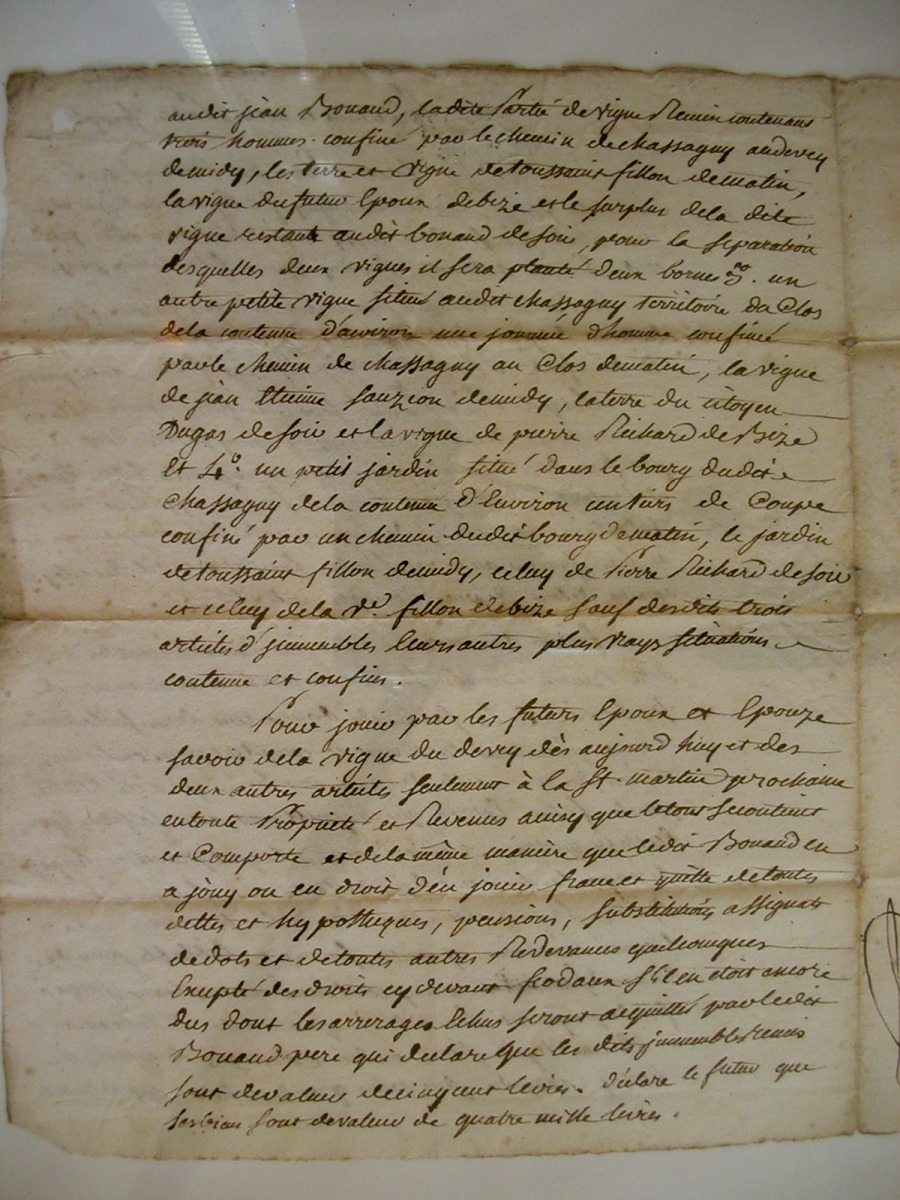 audit jean Bonand, ladite Partie de vigne Remin contenans
trois hommes confiné par le chemin de chassagny au devey
de midy, les terre et vigne de toussaint fillon de matin,
la vigne du futur Epoux de bize et le surplus de la dite
vigne restante audit bonand de soir, pour la separation
desquelles deux vignes il sera planté deux bornes 3o. un
autre petite vigne situé audit chassagny territoire du Clos
de la contenue d'environ une journée d'homme confiné
par le chemin de chassagny au Clos de matin, la vigne
de jean Etienne Sauzeon de midy, la terre du citoyen
Dugas de soir et la vigne de pierre Richard de Bize
et 4o. un petit jardin situé dans le bourg dudit
Chassagny de la contenue d'Environ un tiers de Coupe
confiné par un chemin dudit bourg de matin, le jardin
de toussaint fillon de midy, celuy de Pierre Richard de soir
et celuy de la ve. fillon de bize sauf desdits trois
articles d'jmmeubles leurs autres plus vrays situations
contenue et confins.
Pour jouir par les futurs Epoux et Epouze
savoir de la vigne du devey dès aujourd'huy et des
deux autres articles seulement à la St. martin prochaine
en toute Propriété et Revenus ainsy que le tout se contient
et Comporte et de la même manière que ledit Bonand en
a jouy ou eu droit d'en jouir franc et quitte de toutes
dettes et hypotheques, pensions, substitutions assignats
de dots et de toutes autres Redevances quelconques
Excepté des droits cy devant feodaux S'il en étoit encore
dus dont les arrerages Echus seront acquittés par ledit
Bonand pere qui declare que les dits jmmeubles remis
sont de valeur de cinq cent livres. Déclare le futur que
ses bien sont de valeur de quatre mille livres.